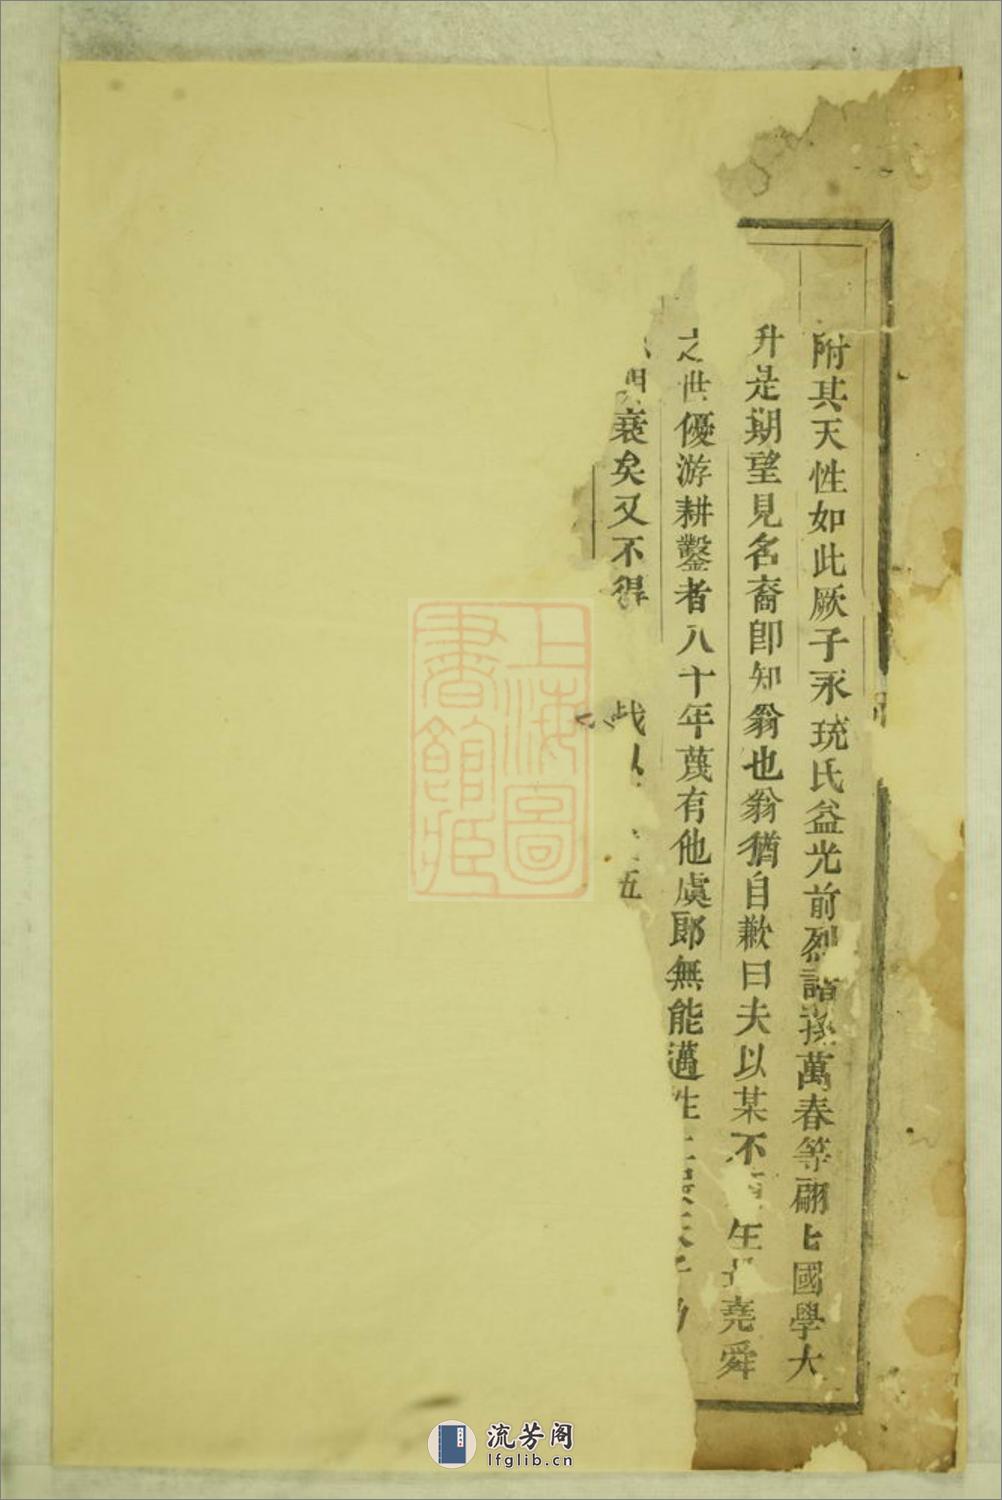 附其天性如此厥子永珫氏益光前烈諸孫萬春等翩七國學大
升是期望見名裔卽知翁也翁猶自歉曰夫以某不 生 堯舜
之世優游耕鑿者八十年蔑有他虞郞無能邁
衰矣又不得
五
上海圖書館藏
流芳阁
lfglib.cn